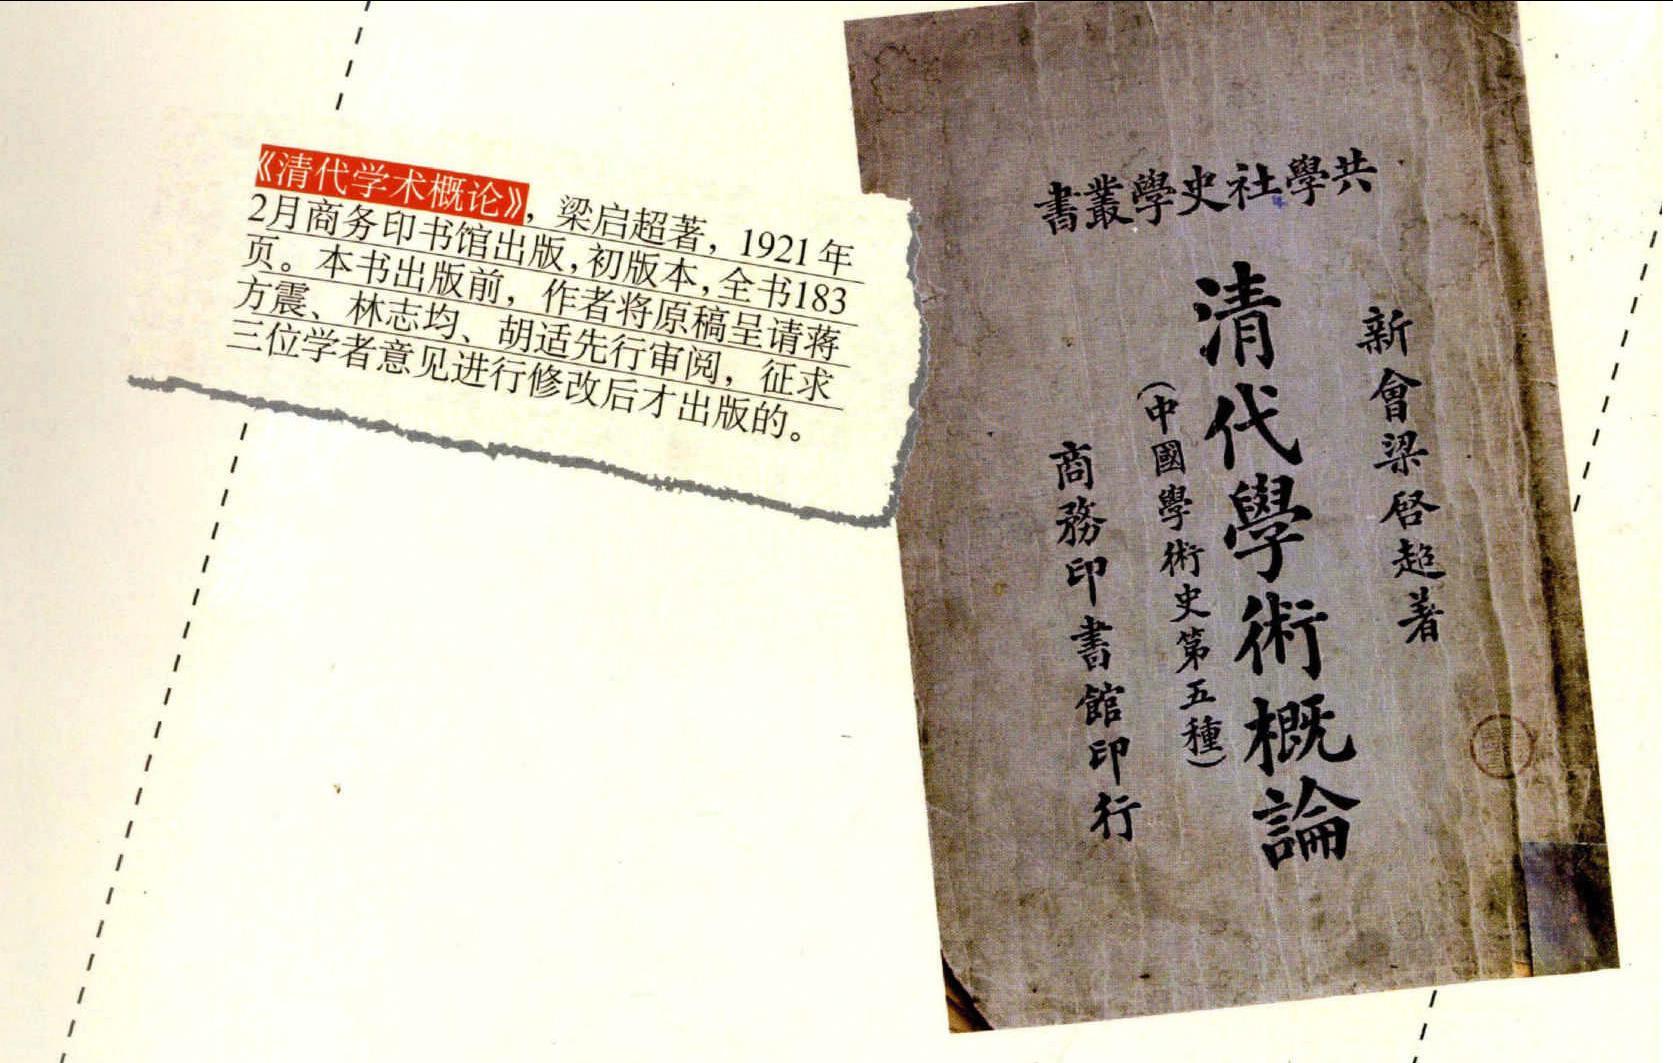 《清代学术概论》，梁启超著，1921年
2月商务印书馆出版，初版本，全书183
页。本书出版前，作者将原稿呈请蒋
方震、林志均、胡适先行审阅，征求
三位学者意见进行修改后才出版的。
共學社史學叢書
新會梁啓超著
清代學術概論
（中國學術史第五種）
商務印書館印行